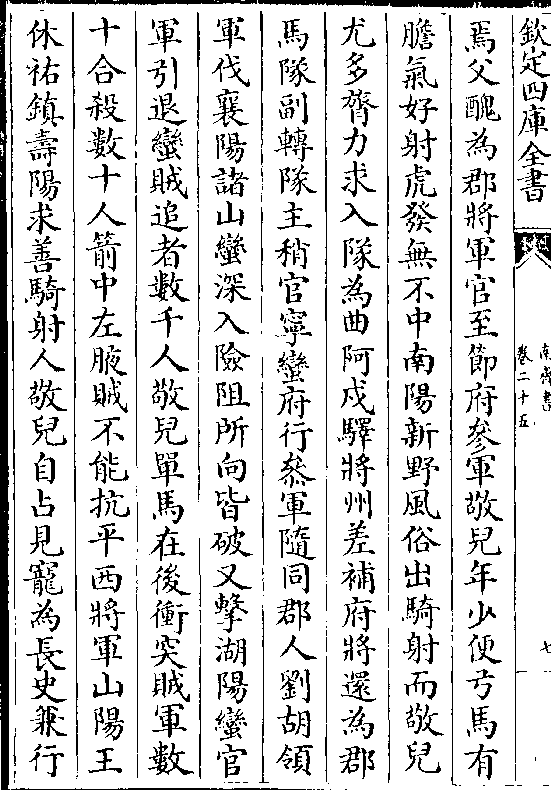 欽定四庫全書
南齊書
卷二十五
七
焉父醜為郡將軍官至節府參軍敬兒年少便弓馬有
膽氣好射虎發無不中南陽新野風俗出騎射而敬兒
尤多膂力求入隊為曲阿戍驛將州差補府將還為郡
馬隊副轉隊主稍官寧蠻府行叅軍隨同郡人劉胡領
軍伐襄陽諸山蠻深入險阻所向皆破又擊湖陽蠻官
軍引退蠻賊追者數千人敬兒單馬在後衝突賊軍數
十合殺數十人箭中左腋賊不能抗平西將軍山陽王
休祐鎮壽陽求善騎射人敬兒自占見寵為長史兼行